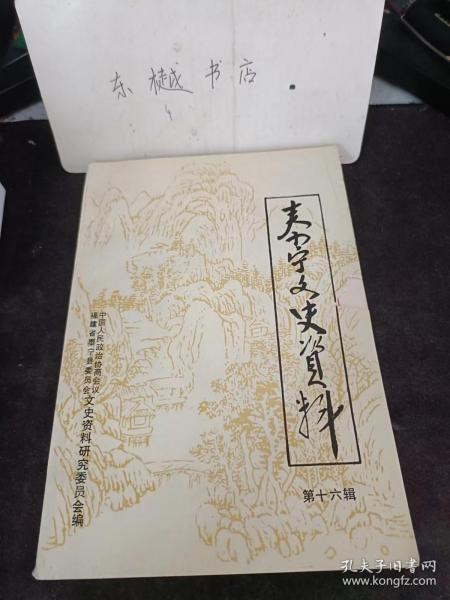 东樾书店
泰宁文史资料
第十六辑
中国人民政治协商会议
福建省泰宁县委员会
文史资料研究委员会编
孔夫子旧书网
www.kongfz.com